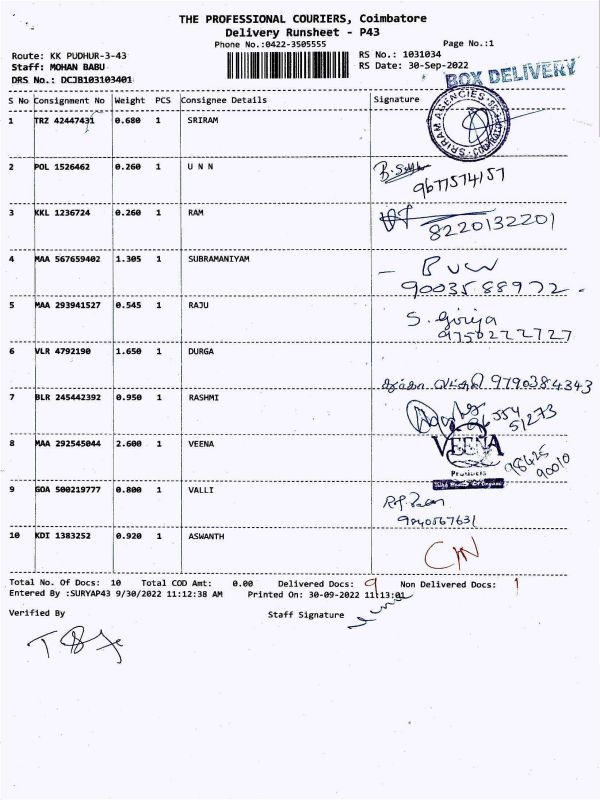 THE PROFESSIONAL COURIERS, Coimbatore
Delivery Runsheet - P43
Phone No.:0422-3505555 Page No.:1
Route: KK PUDHUR-3-43 RS No.: 1031034
Staff: MOHAN BABU RS Date: 30-Sep-2022
DRS No.: DCJB103103401 BOX DELIVERY
S No Consignment No Weight PCS Consignee Details Signature
1 TRZ 42447431 0.680 1 SRIRAM SRIRAM AGENCIES
2 POL 1526462 0.260 1 U N N
9677574157
3 KKL 1236724 0.260 1 RAM
8220132201
4 MAA 567659402 1.305 1 SUBRAMANIYAM
9003588972
5 MAA 293941527 0.545 1 RAJU S. Girija
9750222727
6 VLR 4792190 1.650 1 DURGA
9790384343
7 BLR 245442392 0.950 1 RASHMI
51273
8 MAA 292545044 2.600 1 VEENA VEENA
Products
98425
90010
9 GOA 500219777 0.800 1 VALLI
9840567631
10 KDI 1383252 0.920 1 ASWANTH C/N
Total No. Of Docs: 10 Total COD Amt: 0.00 Delivered Docs: 9 Non Delivered Docs: 1
Entered By :SURYAP43 9/30/2022 11:12:38 AM Printed On: 30-09-2022 11:13:01
Verified By Staff Signature